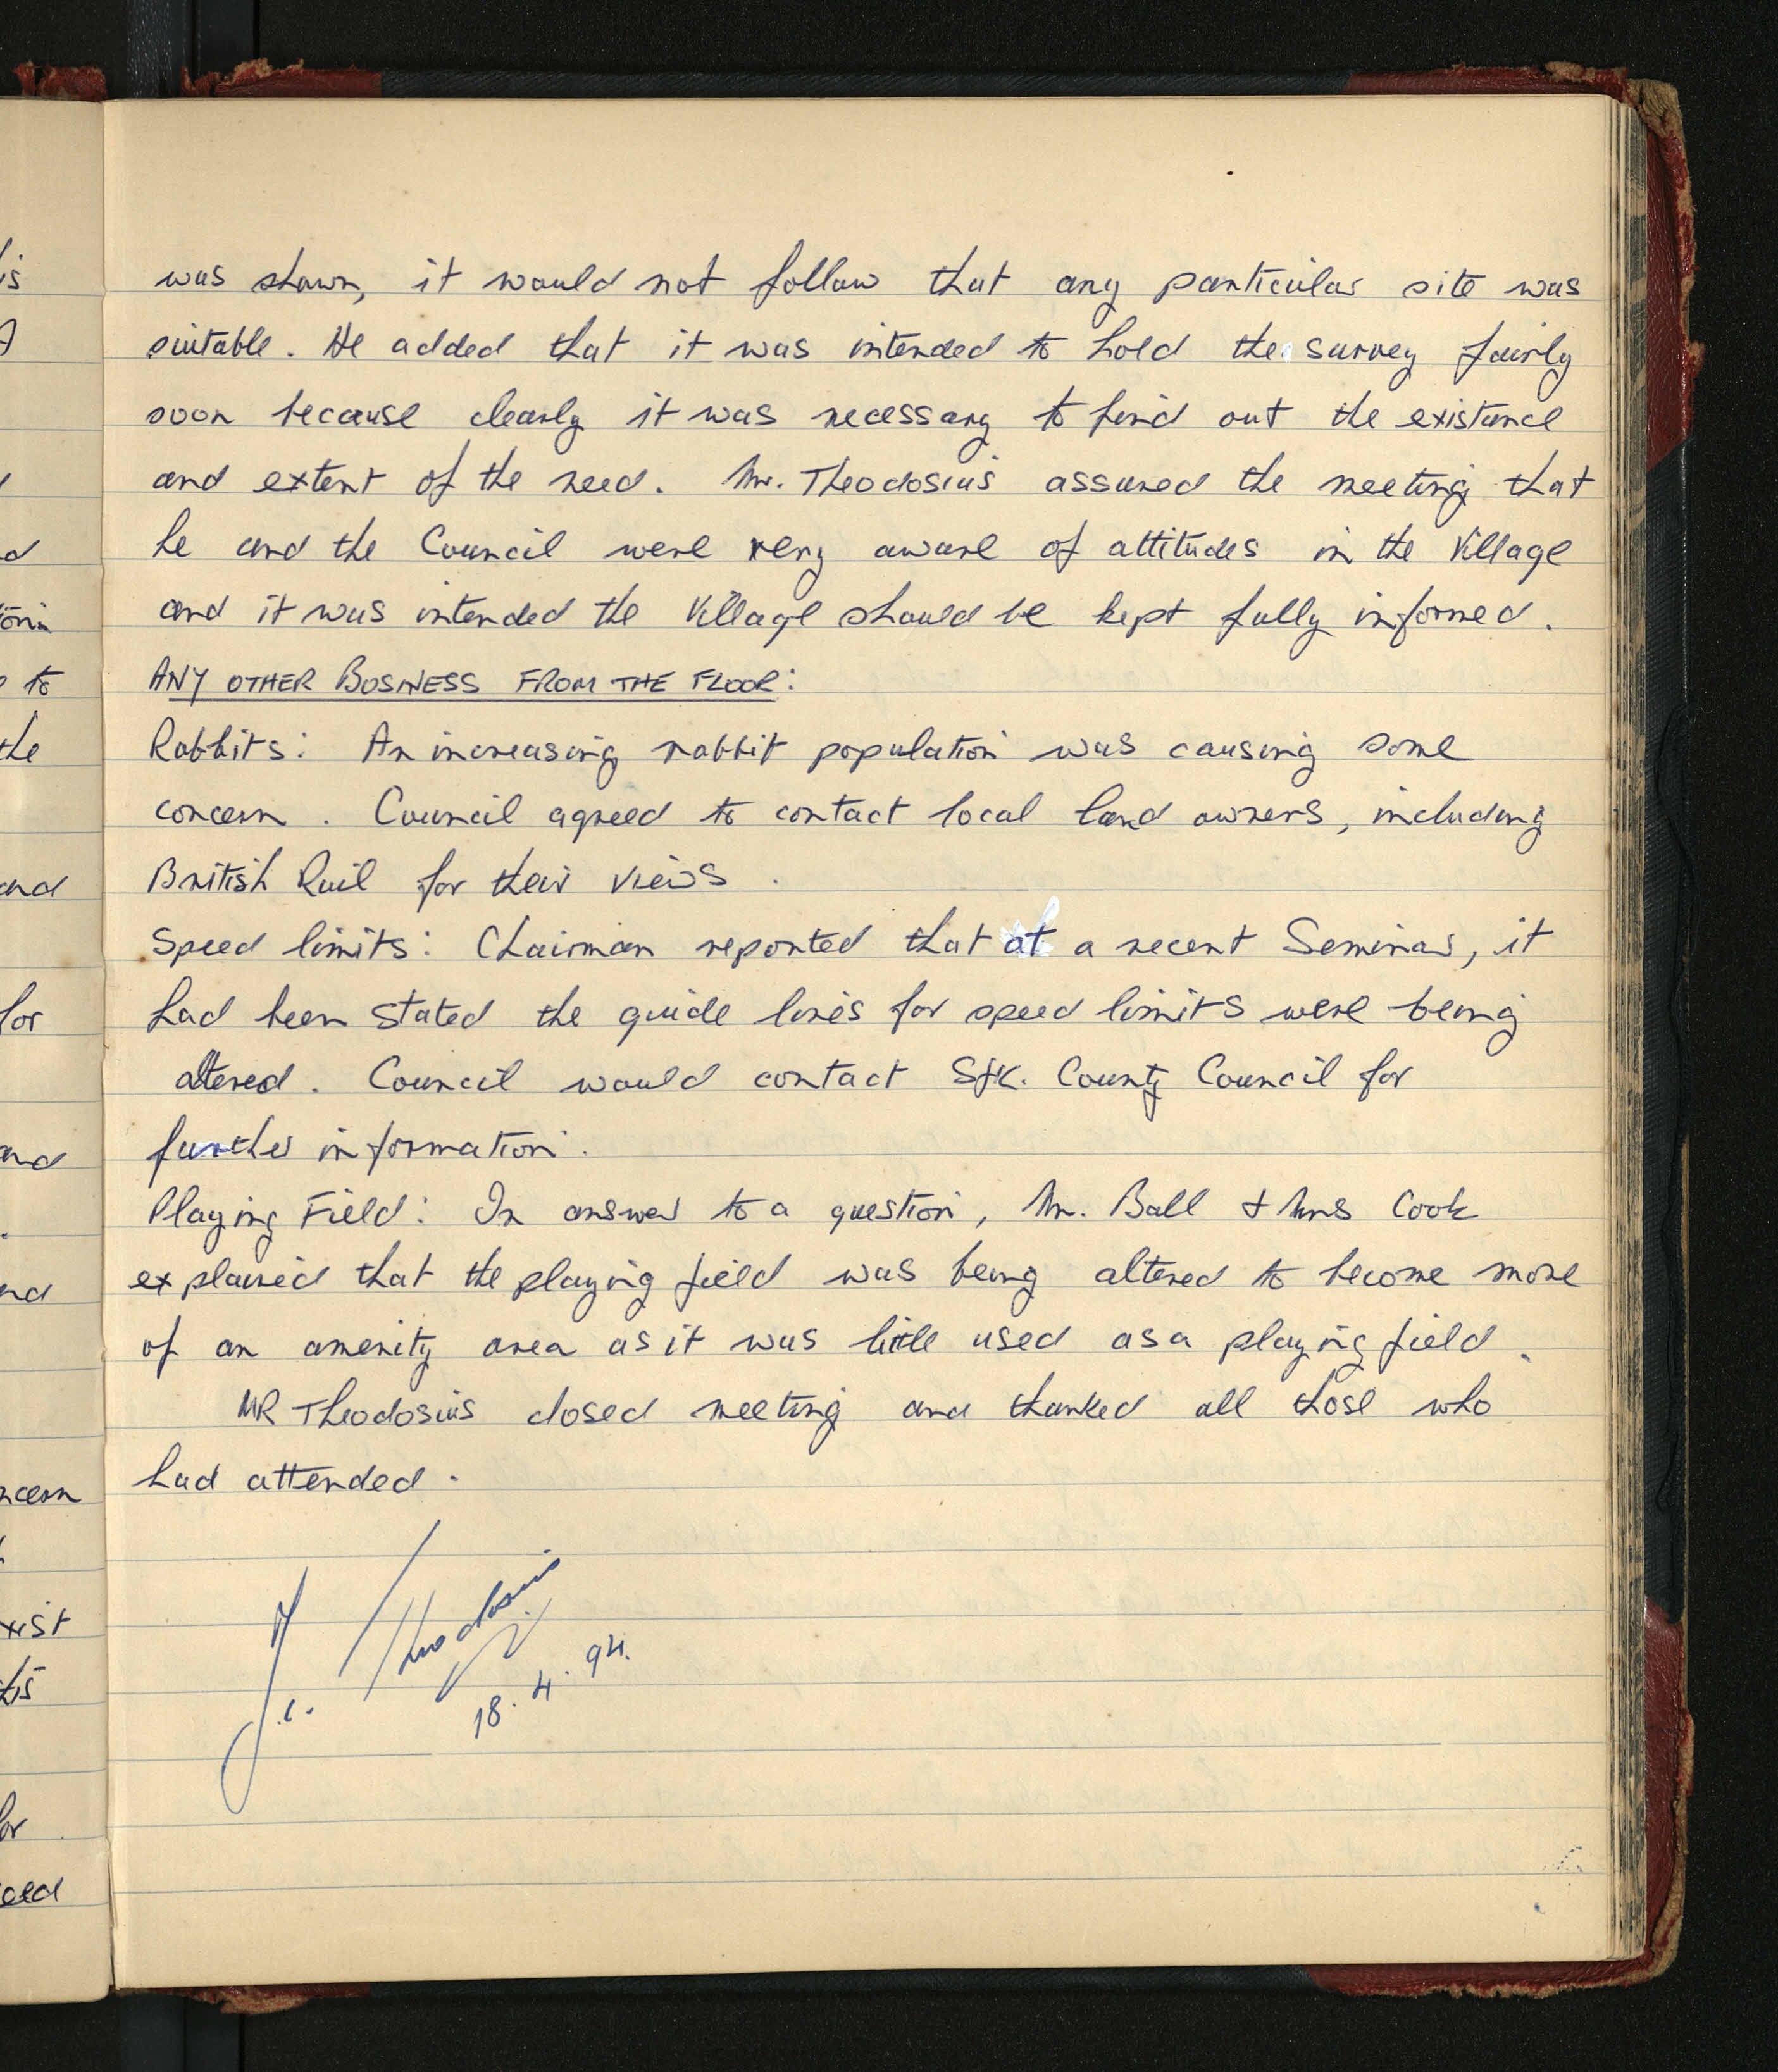 was shown, it would not follow that any particular site was
suitable. He added that it was intended to hold the survey fairly
soon because clearly it was necessary to find out the existance
and extent of the need. Mr. Theodosius assured the meeting that
he and the Council were very aware of attitudes in the Village
and it was intended the Village should be kept fully informed.
ANY OTHER BUSINESS FROM THE FLOOR:
Rabbits: An increasing rabbit population was causing some
concern. Council agreed to contact local land owners, including
British Rail for their views.
Speed limits: Chairman reported that at a recent Seminar, it
had been stated the guide lines for speed limits were being
altered. Council would contact Sfk. County Council for
further information.
Playing Field: In answer to a question, Mr. Ball & Mrs Cook
explained that the playing field was being altered to become more
of an amenity area as it was little used as a playing field.
MR Theodosius closed meeting and thanked all those who
had attended.
Theodosius
18.4.94.
is
to
the
and
for
and
nd
ncern
xist
for